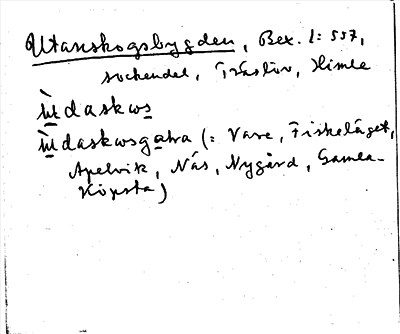 Utanskogsbygden, Bex. 1: 557,
sockendel, Träslöv, Himle
ὼdaskωs
ὼdaskωsgatra (: Vare, Fiskeläget,
Apelvik, Näs, Nygård, Gamla-
Köpsta)